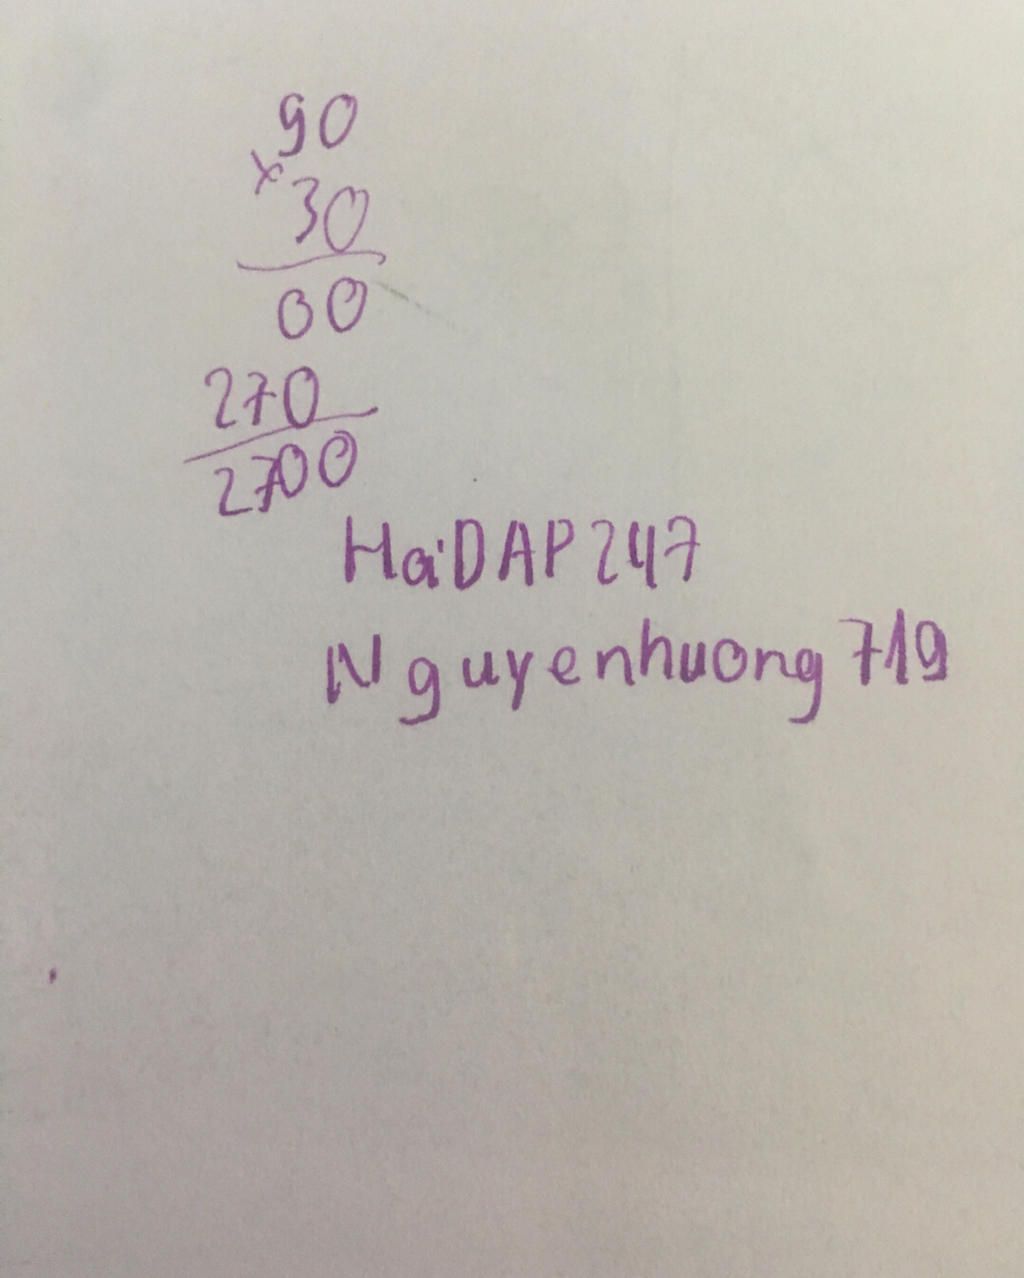 90
×
30
00
270
2700
HoiDAP247
Nguyenhuong719